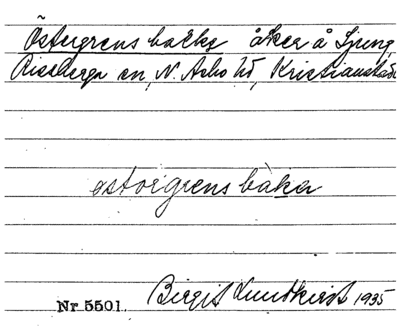 Östergrens backe åker å Ljung,
Riseberga sn, N. Åsbo hd, Kristianstads
østorgrens bàka
Nr 5501. Birgit Lundkvist 1935